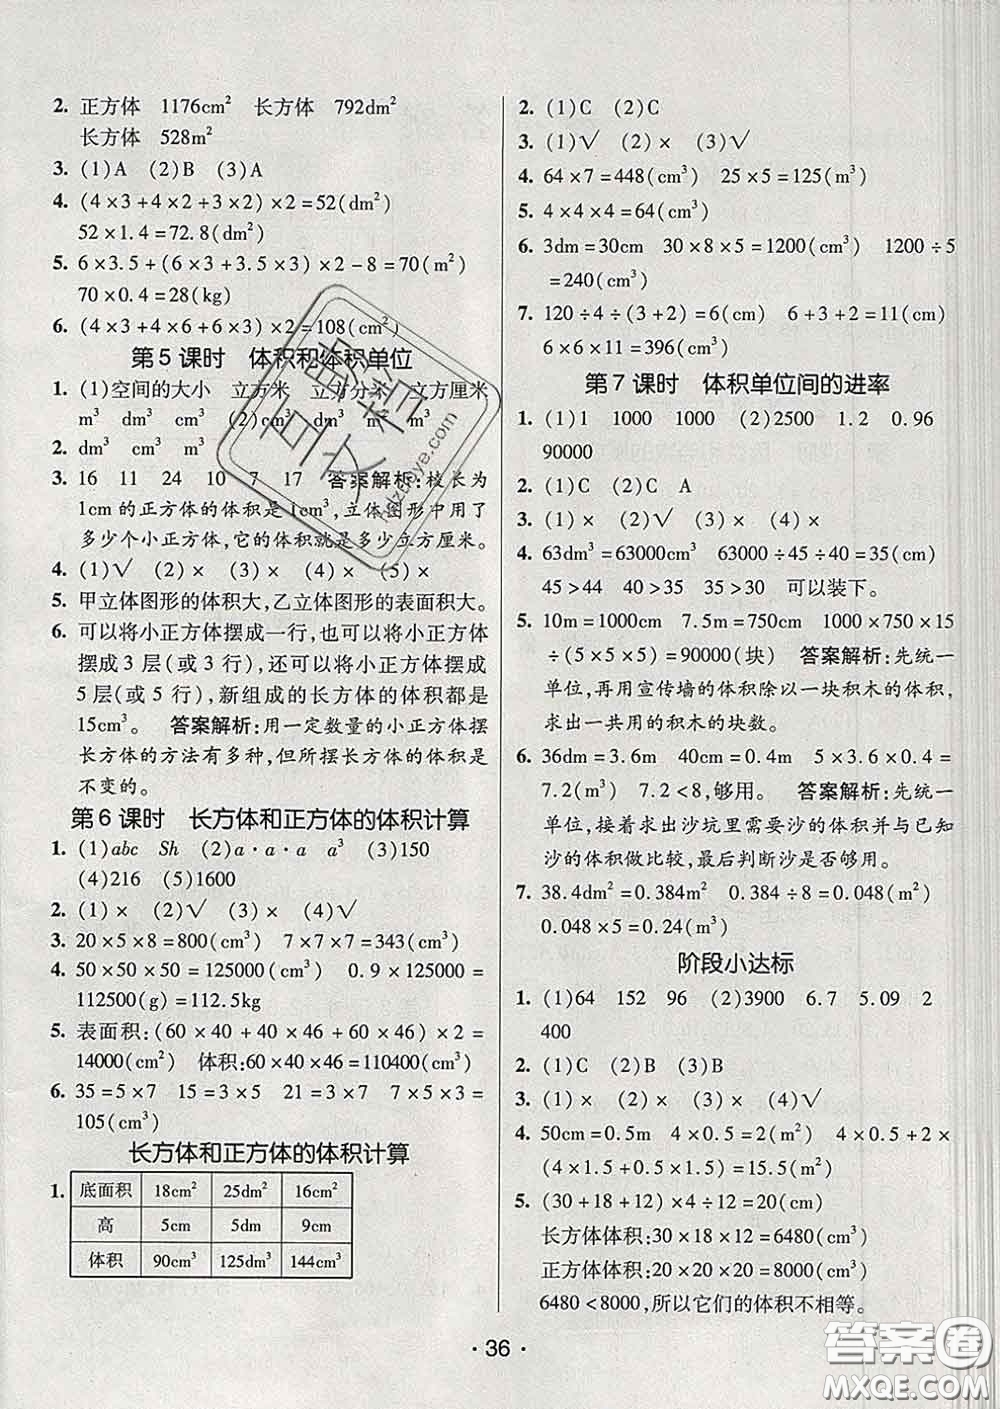 2. 正方体 1176cm² 长方体 792dm²
长方体 528m²
3. (1)A (2)B (3)A
4. (4×3+4×2+3×2)×2=52(dm²)
52×1.4=72.8(dm²)
5. 6×3.5+(6×3+3.5×3)×2-8=70(m²)
70×0.4=28(kg)
6. (4×3+4×6+6×3)×2=108(cm²)
第5课时 体积和体积单位
1. (1)空间的大小 立方米 立方分米 立方厘米
m³ dm³ cm³ (2)cm³ dm³ m³ m³
2. dm³ cm³ m³
3. 16 11 24 10 7 17 答案解析:棱长为
1cm的正方体的体积是1cm³,立体图形中用了
多少个小正方体,它的体积就是多少立方厘米。
4. (1)√ (2)× (3)× (4)× (5)×
5. 甲立体图形的体积大,乙立体图形的表面积大。
6. 可以将小正方体摆成一行,也可以将小正方体
摆成3层(或3行),还可以将小正方体摆成
5层(或5行),新组成的长方体的体积都是
15cm³。 答案解析:用一定数量的小正方体摆
长方体的方法有多种,但所摆长方体的体积是
不变的。
第6课时 长方体和正方体的体积计算
1. (1)abc Sh (2)a·a·a a³ (3)150
(4)216 (5)1600
2. (1)× (2)√ (3)× (4)√
3. 20×5×8=800(cm³) 7×7×7=343(cm³)
4. 50×50×50=125000(cm³) 0.9×125000
=112500(g)=112.5kg
5. 表面积:(60×40+40×46+60×46)×2=
14000(cm²) 体积:60×40×46=110400(cm³)
6. 35=5×7 15=3×5 21=3×7 7×5×3=
105(cm³)
长方体和正方体的体积计算
1. 底面积 18cm² 25dm² 16cm²
高 5cm 5dm 9cm
体积 90cm³ 125dm³ 144cm³
2. (1)C (2)C
3. (1)√ (2)× (3)√
4. 64×7=448(cm³) 25×5=125(m³)
5. 4×4×4=64(cm³)
6. 3dm=30cm 30×8×5=1200(cm³) 1200÷5
=240(cm³)
7. 120÷4÷(3+2)=6(cm) 6+3+2=11(cm)
6×6×11=396(cm³)
第7课时 体积单位间的进率
1. (1)1 1000 1000 (2)2500 1.2 0.96
90000
2. (1)C (2)C A
3. (1)× (2)√ (3)× (4)×
4. 63dm³=63000cm³ 63000÷45÷40=35(cm)
45>44 40>35 35>30 可以装下。
5. 10m=1000cm 7.5m=750cm 1000×750×15
÷(5×5×5)=90000(块) 答案解析:先统一
单位,再用宣传墙的体积除以一块积木的体积,
求出一共用的积木的块数。
6. 36dm=3.6m 40cm=0.4m 5×3.6×0.4=
7.2(m³) 7.2<8,够用。 答案解析:先统一
单位,接着求出沙坑里需要沙的体积并与已知
沙的体积做比较,最后判断沙是否够用。
7. 38.4dm²=0.384m² 0.384÷8=0.048(m²)
0.048×5=0.24(m³)
阶段小达标
1. (1)64 152 96 (2)3900 6.7 5.09 2
400
2. (1)C (2)B (3)B
3. (1)× (2)√ (3)× (4)√
4. 50cm=0.5m 4×0.5=2(m²) 4×0.5+2×
(4×1.5+0.5×1.5)=15.5(m²)
5. (30+18+12)×4÷12=20(cm)
长方体体积:30×18×12=6480(cm³)
正方体体积:20×20×20=8000(cm³)
6480<8000,所以它们的体积不相等。
·36·
答案卷
MXQE.COM